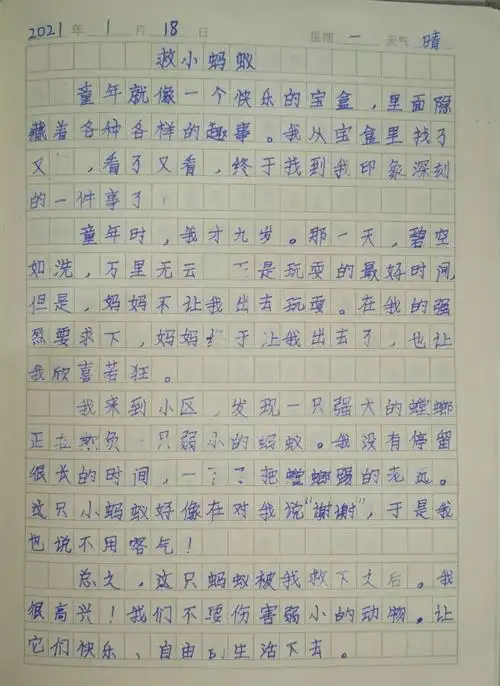 2021年 1月 18日 星期 一 天气 晴
救小蚂蚁
童年就像一个快乐的宝盒，里面隐
藏着各种各样的趣事。我从宝盒里找了
又 ，看了又看，终于找到我印象深刻
的一件事了
童年时，我才九岁。那一天，碧空
如洗，万里无云 是玩耍的最好时间，
但是，妈妈不让我出去玩耍。在我的强
烈要求下，妈妈终于让我出去了，也让
我欣喜若狂。
我来到小区，发现一只强大的螳螂
正在欺负 只弱小的蚂蚁。我没有停留
很长的时间，一 把螳螂踢的老远。
这只小蚂蚁好像在对我说“谢谢”，于是我
也说不用客气！
总之，这只蚂蚁被我救下之后。我
很高兴！我们不要伤害弱小的动物。让
它们快乐、自由的生活下去。